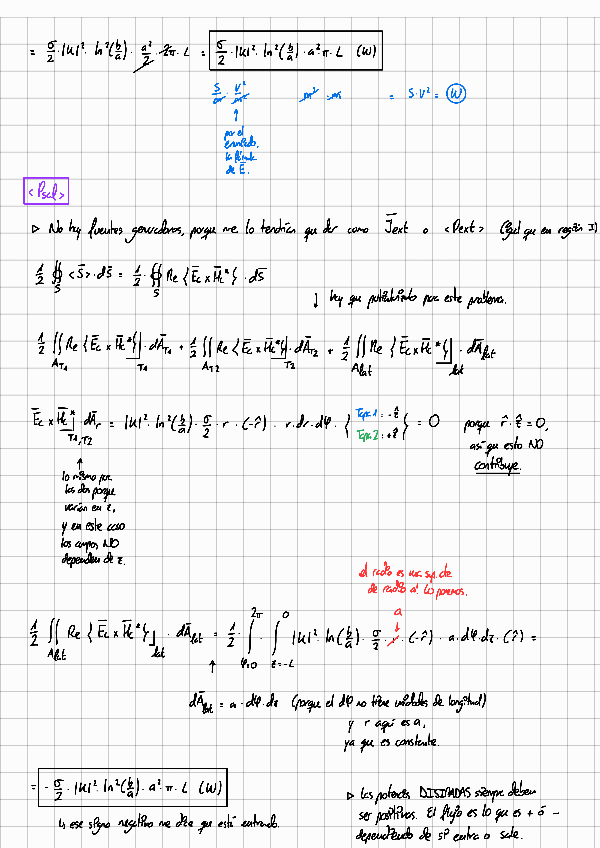 = σ/2 · |K|² · ln²(b/a) · a²/2 · 2π · L = σ/2 · |K|² · ln²(b/a) · a² π · L (W)
S/m · V²/m² m² · m = S·V² = W
↑
por el
enunciado,
la fórmula
de Ē.
<Psal>
▷ No hay fuentes generadoras, porque me lo tendrían que dar como J̄ext o <Pext> (igual que en región I)
1/2 ∯_S <S̄>·ds̄ = 1/2 · ∯_S Re {Ēc x H̄c*} · ds̄
↓ hay que particularizarlo para este problema.
1/2 ∬_AT1 Re {Ēc x H̄c*}_T1 · dĀ_T1 + 1/2 ∬_AT2 Re {Ēc x H̄c*}_T2 · dĀ_T2 + 1/2 ∬_Alat Re {Ēc x H̄c*}_lat · dĀ_lat
Ēc x H̄c*_T1,T2 · dĀ_T = |K|² · ln²(b/a) · σ/2 · r · (-r̂) · r·dr·dφ · { Tapa 1: -ẑ Tapa 2: +ẑ } = 0 porque r̂·ẑ = 0,
así que esto NO
contribuye.
↑
lo mismo para
las dos porque
varían en z,
y en este caso
los campos NO
dependen de z.
el radio es una sup. cte
de radio a! Lo ponemos.
a
↓
1/2 ∬_Alat Re {Ēc x H̄c*}_lat · dĀ_lat = 1/2 · ∫_φ=0^2π · ∫_z=-L^0 |K|² · ln²(b/a) · σ/2 · r · (-r̂) · a·dφ·dz · (r̂) =
↑
dĀ_lat = a · dφ · dz (porque el dφ no tiene unidades de longitud)
y r aquí es a,
ya que es constante.
= - σ/2 · |K|² · ln²(b/a) · a² · π · L (W)
↳ ese signo negativo me dice que está entrando.
▷ Las potencias DISIPADAS siempre deben
ser positivas. El flujo es lo que es + ó -
dependiendo de si entra o sale.